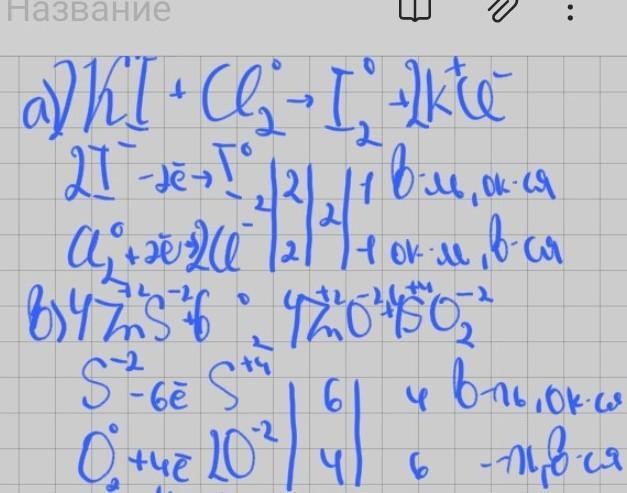 Название
а) 2KI⁻ + Cl₂⁰ → I₂⁰ + 2K⁺Cl⁻
2I⁻ - 2ē → I₂⁰ | 2 | 2 | 1 в-ль, ок-ся
Cl₂⁰ + 2ē → 2Cl⁻ | 2 | | 1 ок-ль, в-ся
в) 4Zn⁺²S⁻² + 6 ⁰₂ 4Zn⁺²O⁻² + 4S⁺⁴O₂⁻²
S⁻² - 6ē S⁺⁴ | 6 | 4 в-ль, ок-ся
O₂⁰ + 4ē 2O⁻² | 4 | 6 -ль, в-ся